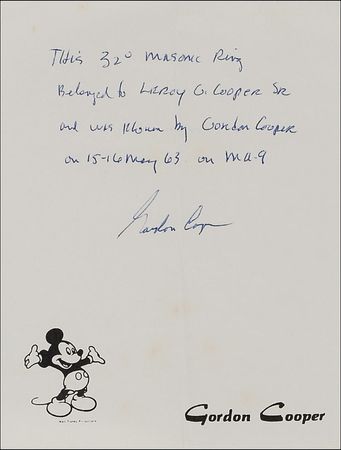 This 32° Masonic Ring
Belonged to Leroy G. Cooper Sr
and was flown by Gordon Cooper
on 15-16 May 63 on MA-9
Gordon Cooper
Gordon Cooper